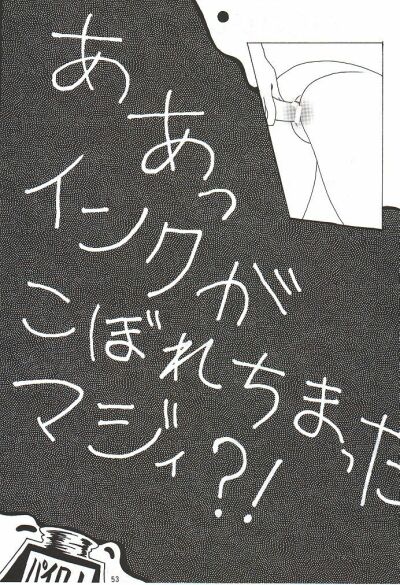 ああっ
インクが
こぼれちまった
マジィ?!
パイロット
53